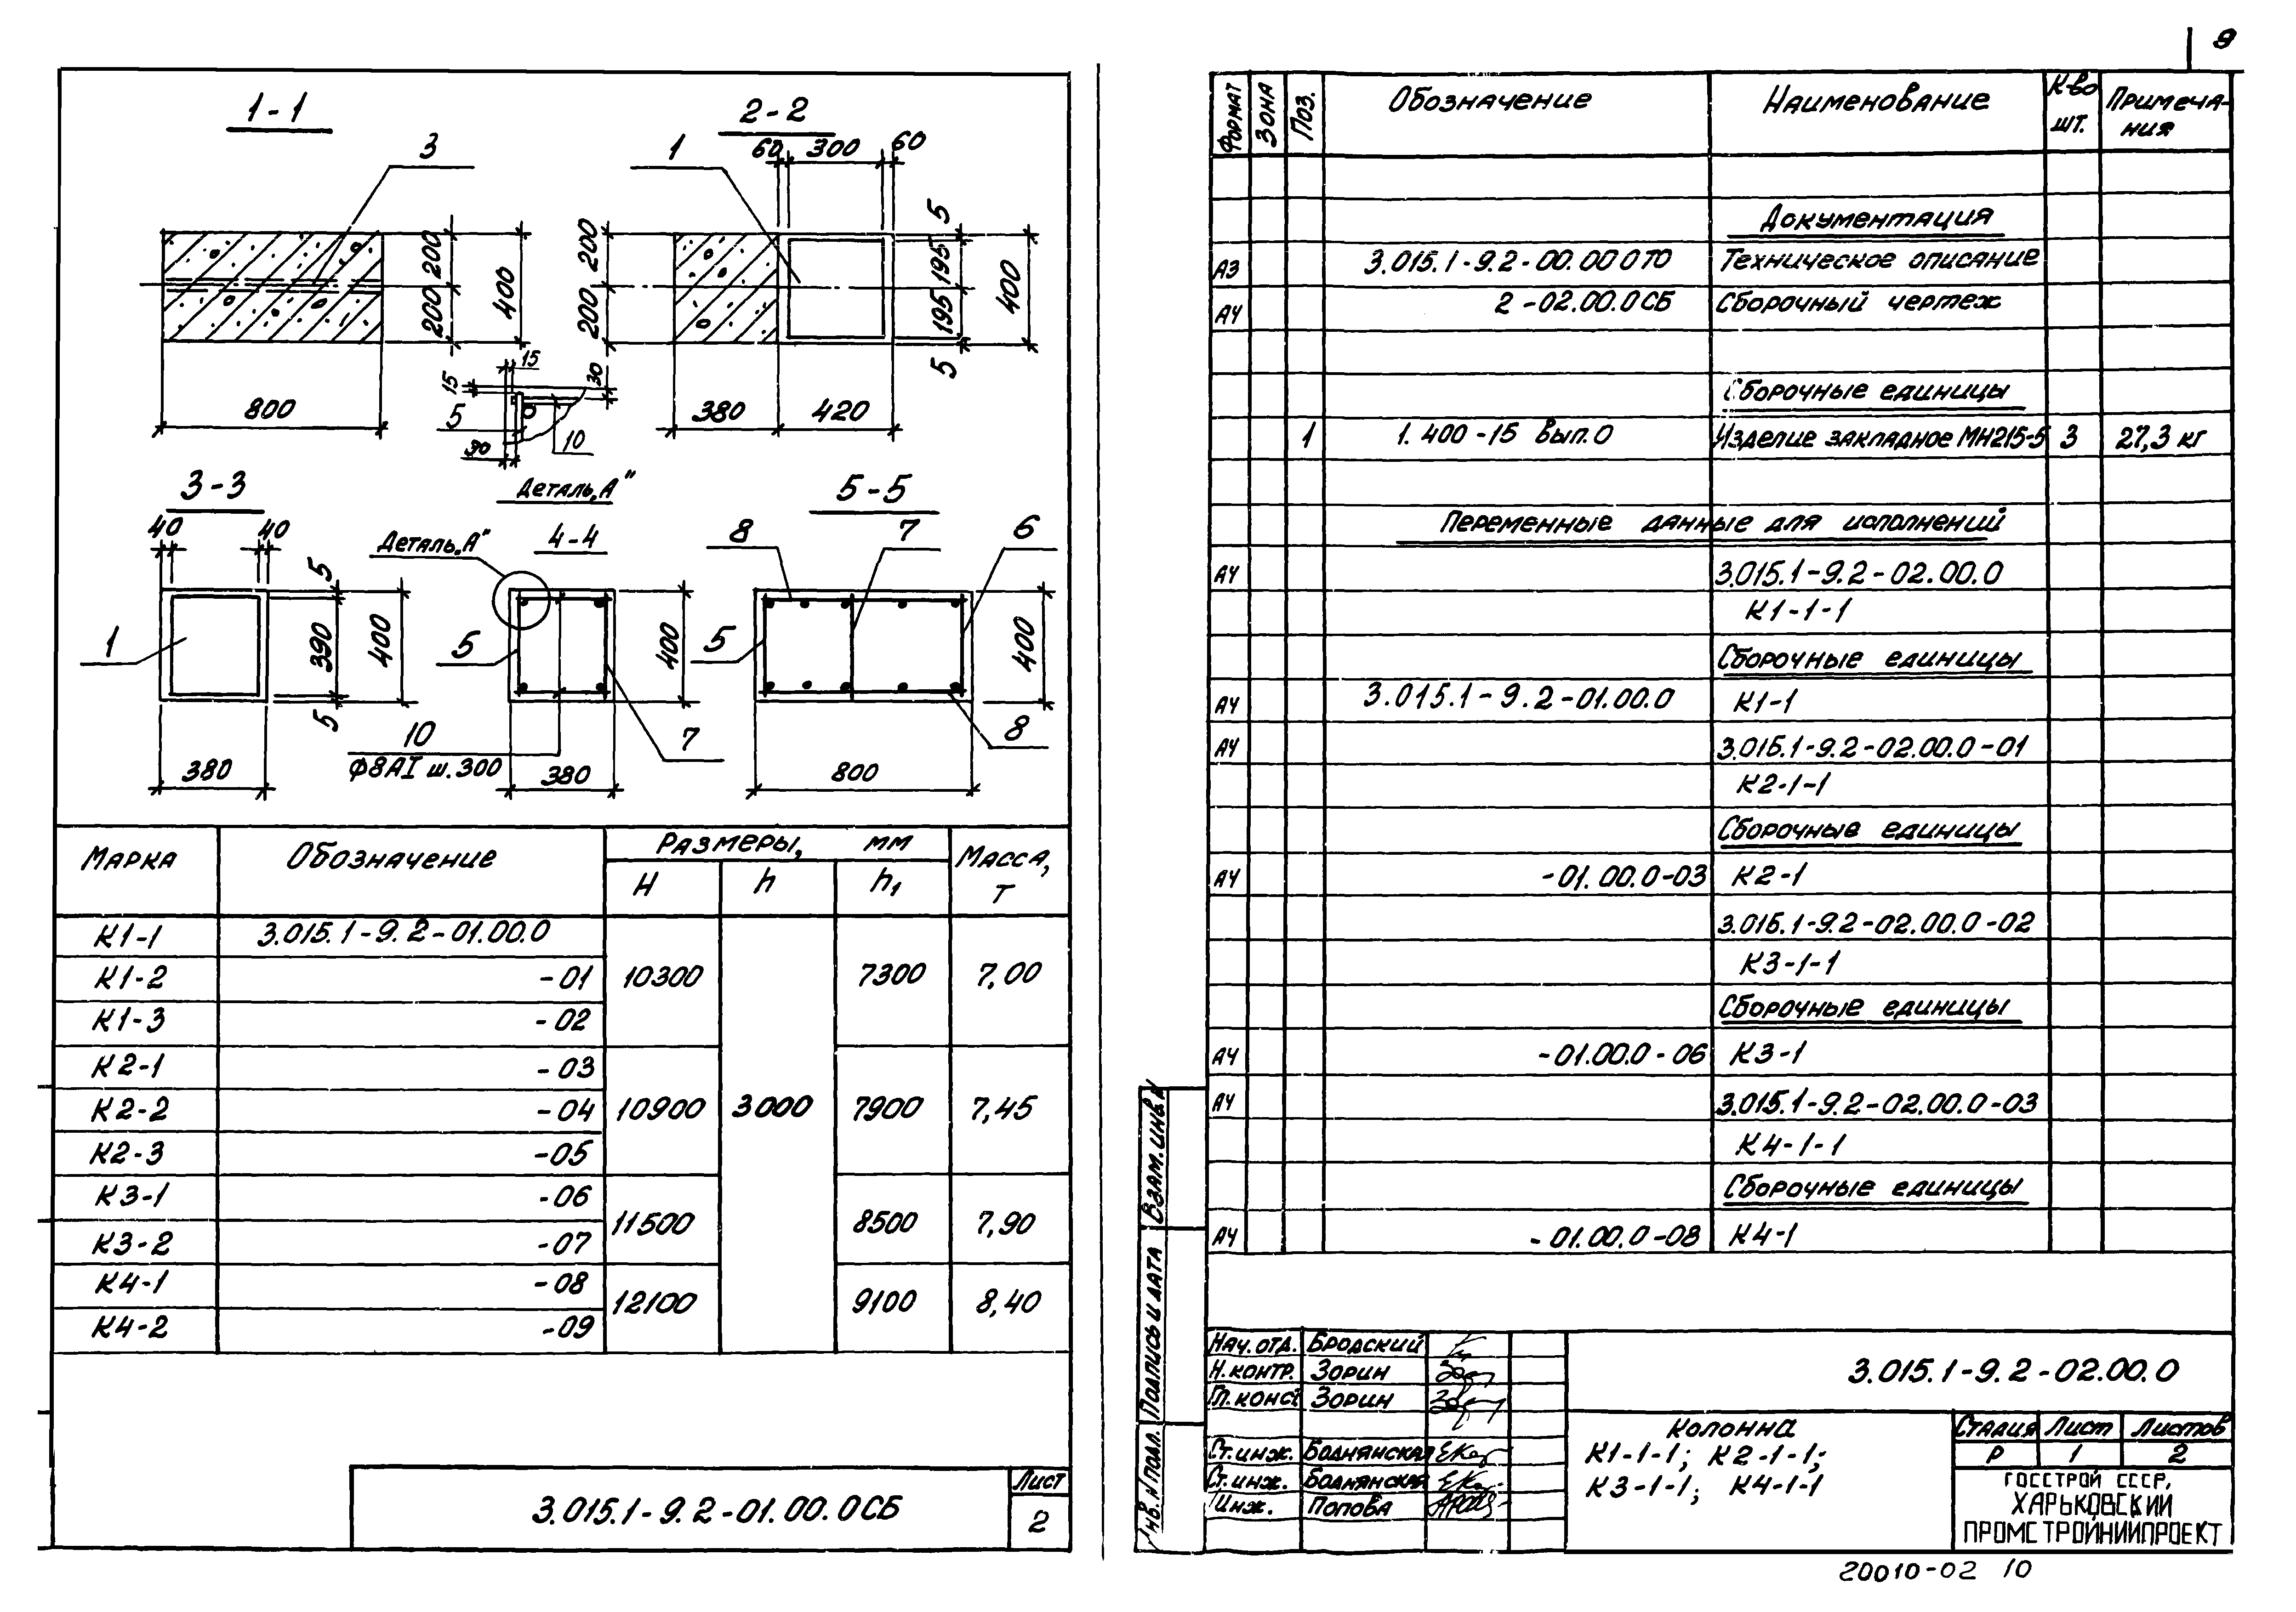 9
1-1
3
200
200
400
800
2-2
1
60
300
60
200
200
5
195
195
5
400
380
420
15
15
30
5
10
30
Деталь „А"
3-3
40
40
1
5
390
5
400
380
Деталь „А"
4-4
5
400
10
ф8АI ш.300
7
380
5-5
8
7
6
5
400
8
800
Марка
Обозначение
Размеры, мм
Масса, т
H
h
h₁
К1-1
3.015.1-9.2-01.00.0
К1-2
-01
10300
7300
7,00
К1-3
-02
К2-1
-03
К2-2
-04
10900
3000
7900
7,45
К2-3
-05
К3-1
-06
11500
8500
7,90
К3-2
-07
К4-1
-08
12100
9100
8,40
К4-2
-09
3.015.1-9.2-01.00.0СБ
Лист
2
Формат
Зона
Поз.
Обозначение
Наименование
К-во шт.
Примеча-
ния
Документация
А3 3.015.1-9.2-00.00 0ТО Техническое описание
А4 2-02.00.0СБ Сборочный чертеж
Сборочные единицы
1 1.400-15 Вып.0 Изделие закладное МН215-5 3 27,3 кг
Переменные данные для исполнений
А4 3.015.1-9.2-02.00.0
К1-1-1
Сборочные единицы
А4 3.015.1-9.2-01.00.0 К1-1
А4 3.015.1-9.2-02.00.0-01
К2-1-1
Сборочные единицы
А4 -01.00.0-03 К2-1
3.015.1-9.2-02.00.0-02
К3-1-1
Сборочные единицы
А4 -01.00.0-06 К3-1
А4 3.015.1-9.2-02.00.0-03
К4-1-1
Сборочные единицы
А4 -01.00.0-08 К4-1
Взам. инв.
Подпись и дата
Инв. № подл.
Нач. отд. Бродский
Н. контр. Зорин
Гл. конст Зорин
Ст. инж. Боднянская
Ст. инж. Боднянская
Инж. Попова
3.015.1-9.2-02.00.0
Колонна
К1-1-1; К2-1-1;
К3-1-1; К4-1-1
Стадия Лист Листов
Р 1 2
ГОССТРОЙ СССР,
ХАРЬКОВСКИЙ
ПРОМСТРОЙНИИПРОЕКТ
20010-02 10